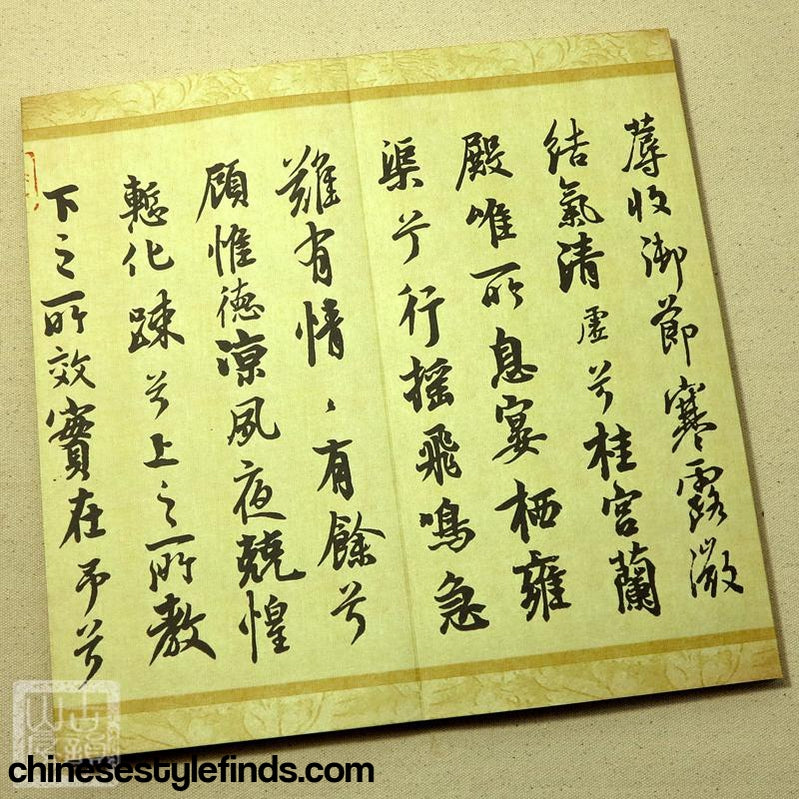 蓐收御節寒露微
結氣清虛兮桂宮蘭
殿唯所息宴栖雍
渠兮行搖飛鳴急
難有情〻有餘兮
顧惟德涼夙夜兢惶
慙化踈兮上之所教
下之所效實在予兮
chinesestylefinds.com